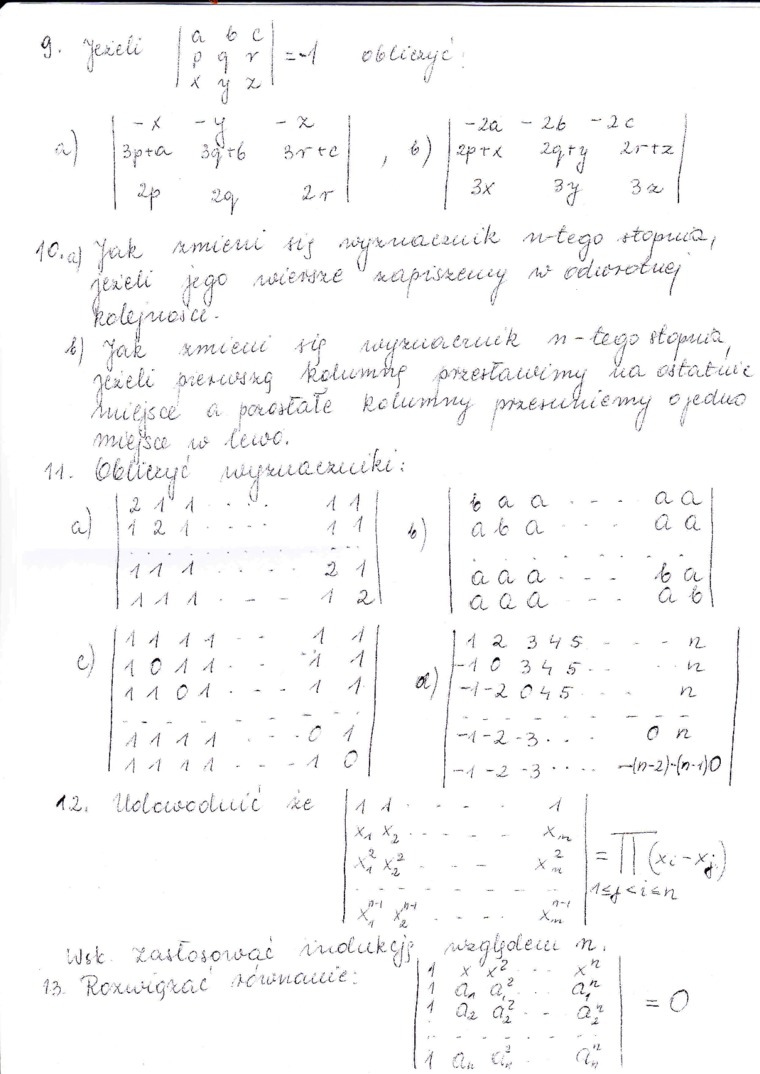 9. Jeżeli | a b c |
| p q r | = -1 obliczyć:
| x y z |
a) | -x -y -z | , b) | -2a -2b -2c |
| 3p+a 3q+b 3r+c | | 2p+x 2q+y 2r+z |
| 2p 2q 2r | | 3x 3y 3z |
10. a) Jak zmieni się wyznacznik n-tego stopnia,
jeżeli jego wiersze zapiszemy w odwrotnej
kolejności.
b) Jak zmieni się wyznacznik n-tego stopnia,
jeżeli pierwszą kolumnę przestawimy na ostatnie
miejsce a pozostałe kolumny przesuniemy o jedno
miejsce w lewo.
11. Obliczyć wyznaczniki:
a) | 2 1 1 . . . . 1 1 | b) | b a a . . . a a |
| 1 2 1 . . . . 1 1 | | a b a a a |
| . . . . . . . . . . | | . . . . . . . . |
| 1 1 1 . . . . 2 1 | | a a a - - - b a |
| 1 1 1 . . - - 1 2 | | a a a - - a b |
c) | 1 1 1 1 - - 1 1 | d) | 1 2 3 4 5 . . - - n |
| 1 0 1 1 - - 1 1 | | -1 0 3 4 5 . . . . n |
| 1 1 0 1 - - - 1 1 | | -1 -2 0 4 5 . . . n |
| - - - - - - - - - | | - - - - - - - - |
| 1 1 1 1 - - - 0 1 | | -1 -2 -3 . . . 0 n |
| 1 1 1 1 - - - 1 0 | | -1 -2 -3 . . . . -(n-2) -(n-1) 0 |
12. Udowodnić że | 1 1 - - - - 1 |
| x₁ x₂ - - - - - xₙ |
| x₁² x₂² - - - xₙ² | = ∏ (xᵢ - xⱼ)
| - - - - - - - - - | 1≤j<i≤n
| x₁ⁿ⁻¹ x₂ⁿ⁻¹ . . . . xₙⁿ⁻¹ |
Wsk. zastosować indukcję względem n.
13. Rozwiązać równanie: | 1 x x² . . . xⁿ |
| 1 a₁ a₁² . . . a₁ⁿ |
| 1 a₂ a₂² . . - a₂ⁿ | = 0
| - - - - - - - - |
| 1 aₙ aₙ² . . . aₙⁿ |